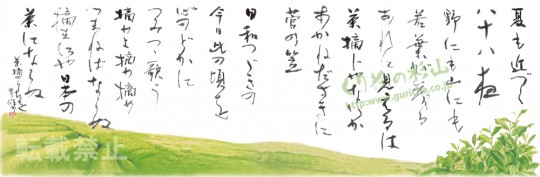 夏も近づく
八十八夜
野にも山にも
若葉が茂る
あれに見えるは
茶摘じゃないか
あかねだすきに
菅の笠
日和つづきの
今日此の頃を
心のどかに
つみつつ歌う
摘めよ摘め摘め
つまねばならぬ
摘まにゃ日本の
茶にならぬ
転載禁止